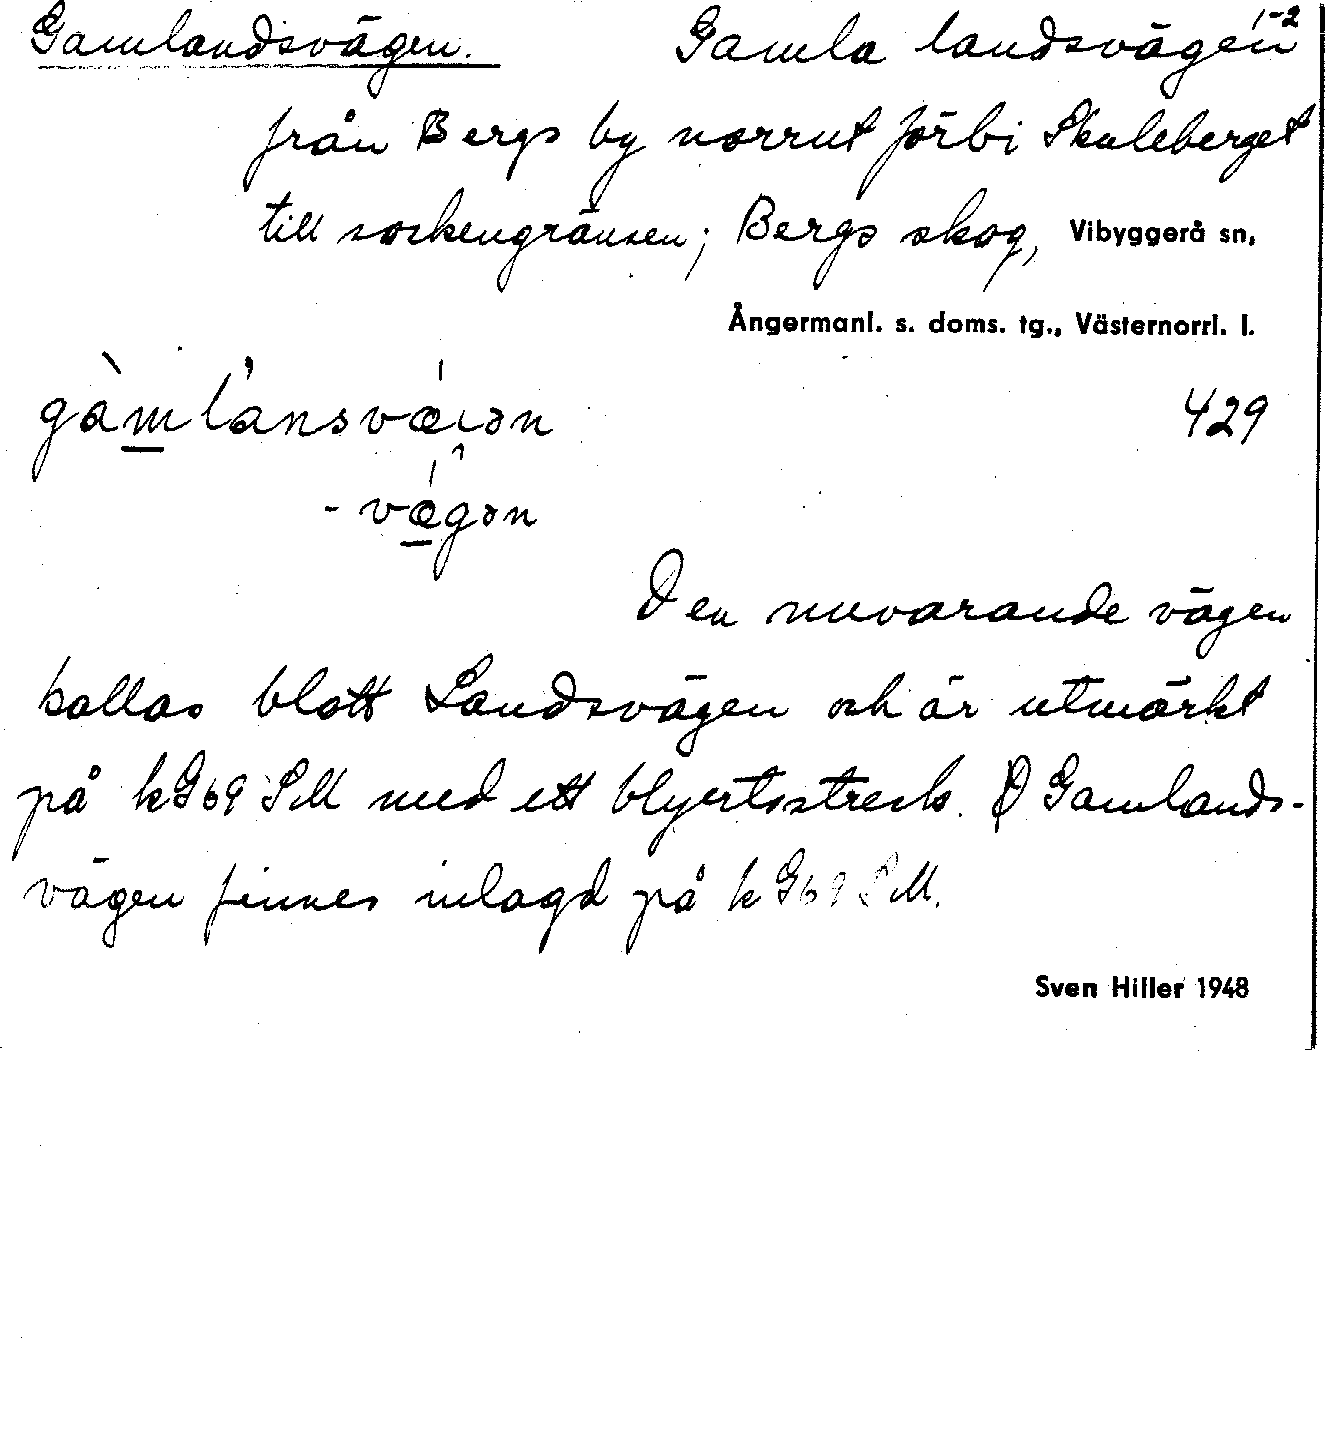 1-2
Gamlandsvägen. Gamla landsvägen
från Bergs by norrut förbi Skuleberget
till sockengränsen; Bergs skog, Vibyggerå sn,
Ångermanl. s. doms. tg., Västernorrl. l.
gàml'ansvǽıən 429
- vǽgən
Den nuvarande vägen
kallas blott Landsvägen och är utmärkt
på k G69 SM med ett blyertsstreck. Gamlands-
vägen finnes inlagd på k G69 SM.
Sven Hiller 1948